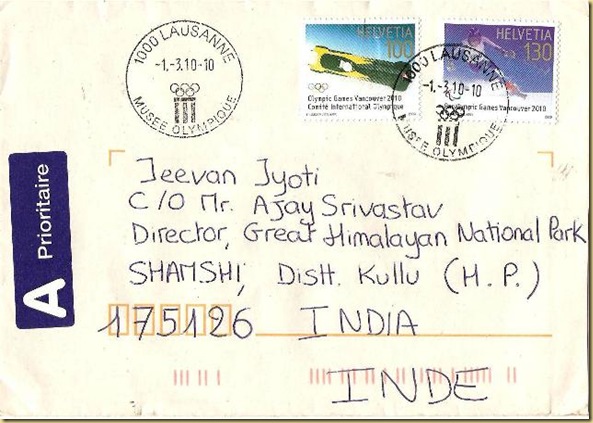 1000 LAUSANNE
-1.-3.10-10
MUSÉE OLYMPIQUE
HELVETIA
100
Olympic Games Vancouver 2010
Comité International Olympique
HELVETIA
130
Olympic Games Vancouver 2010
1000 LAUSANNE
-1.-3.10-10
MUSÉE OLYMPIQUE
A Prioritaire
Jeevan Jyoti
C/O Mr. Ajay Srivastav
Director, Great Himalayan National Park
SHAMSHI, Distt. Kullu (H.P.)
175126 INDIA
INDE